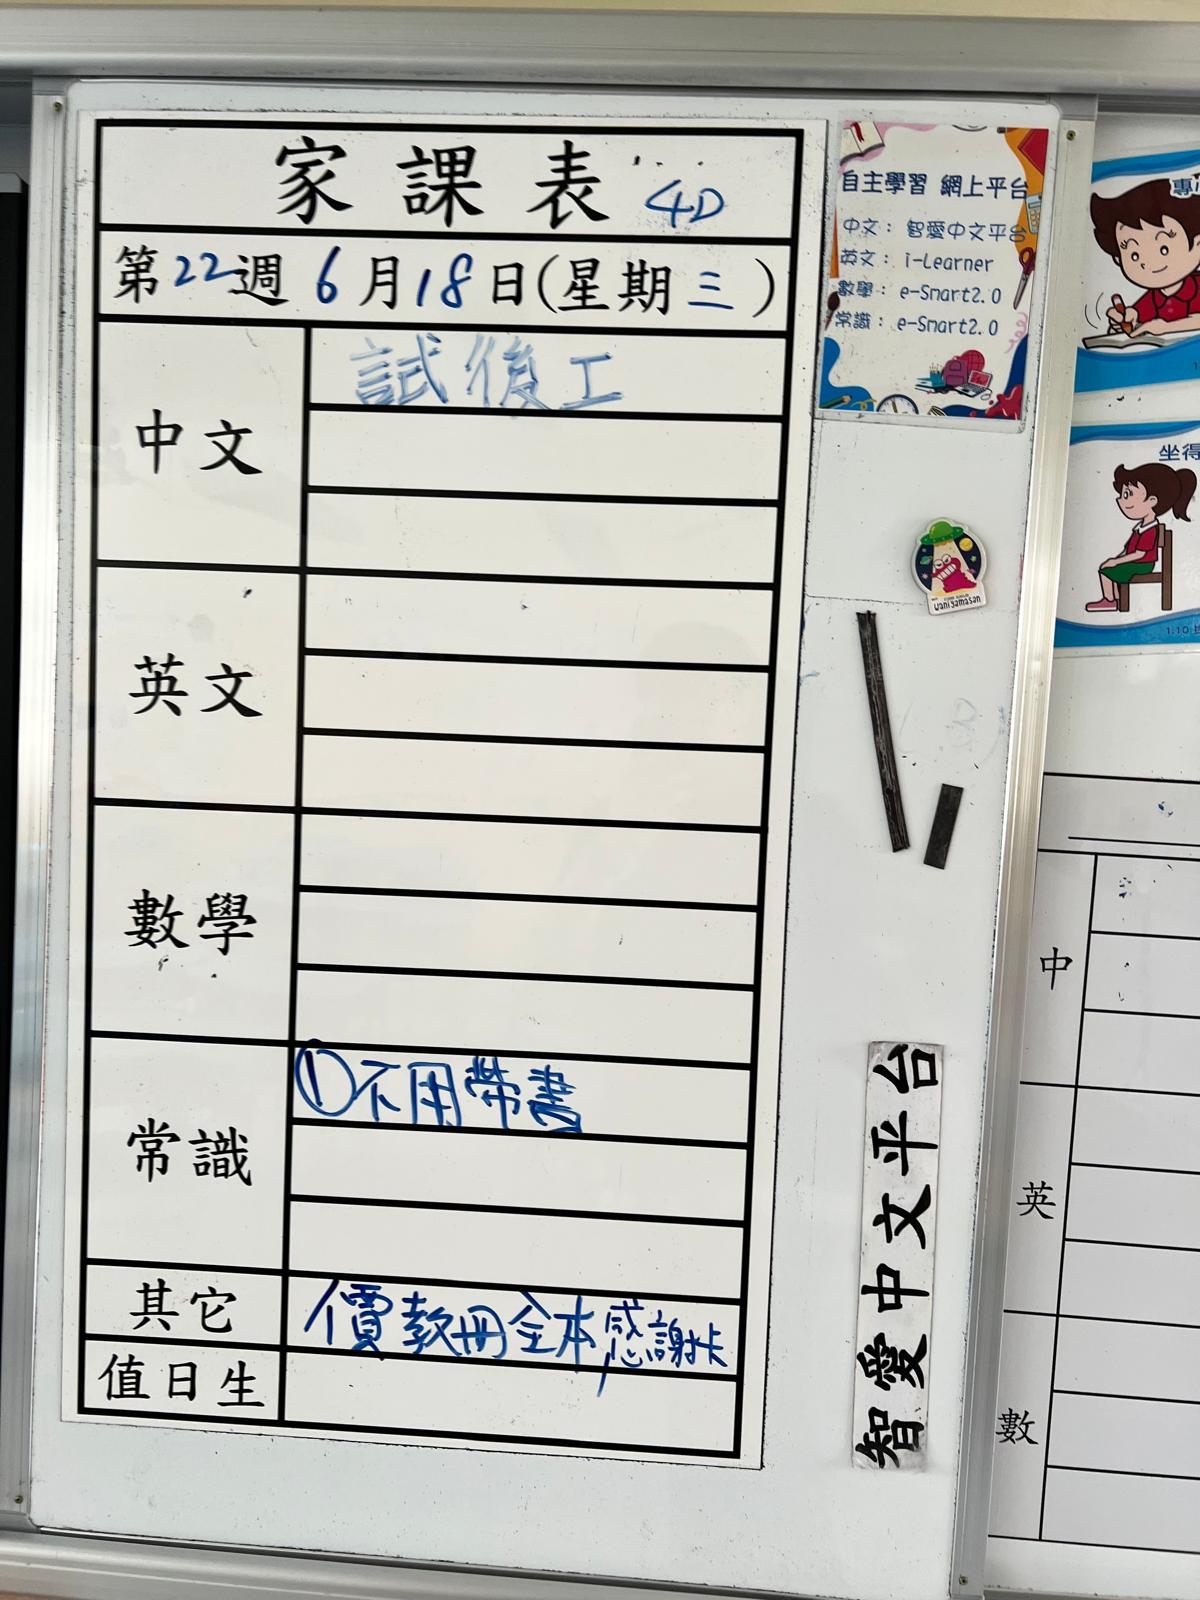 家課表 4D
第22週 6月18日(星期三)
中文
試後工
英文
數學
常識
①不用帶書
其它
價教冊全本,感謝卡
值日生
自主學習 網上平台
中文：智愛中文平台
英文：i-Learner
數學：e-Smart2.0
常識：e-Smart2.0
uaniyamasan
智愛中文平台
專
坐得
1.10
中
英
數